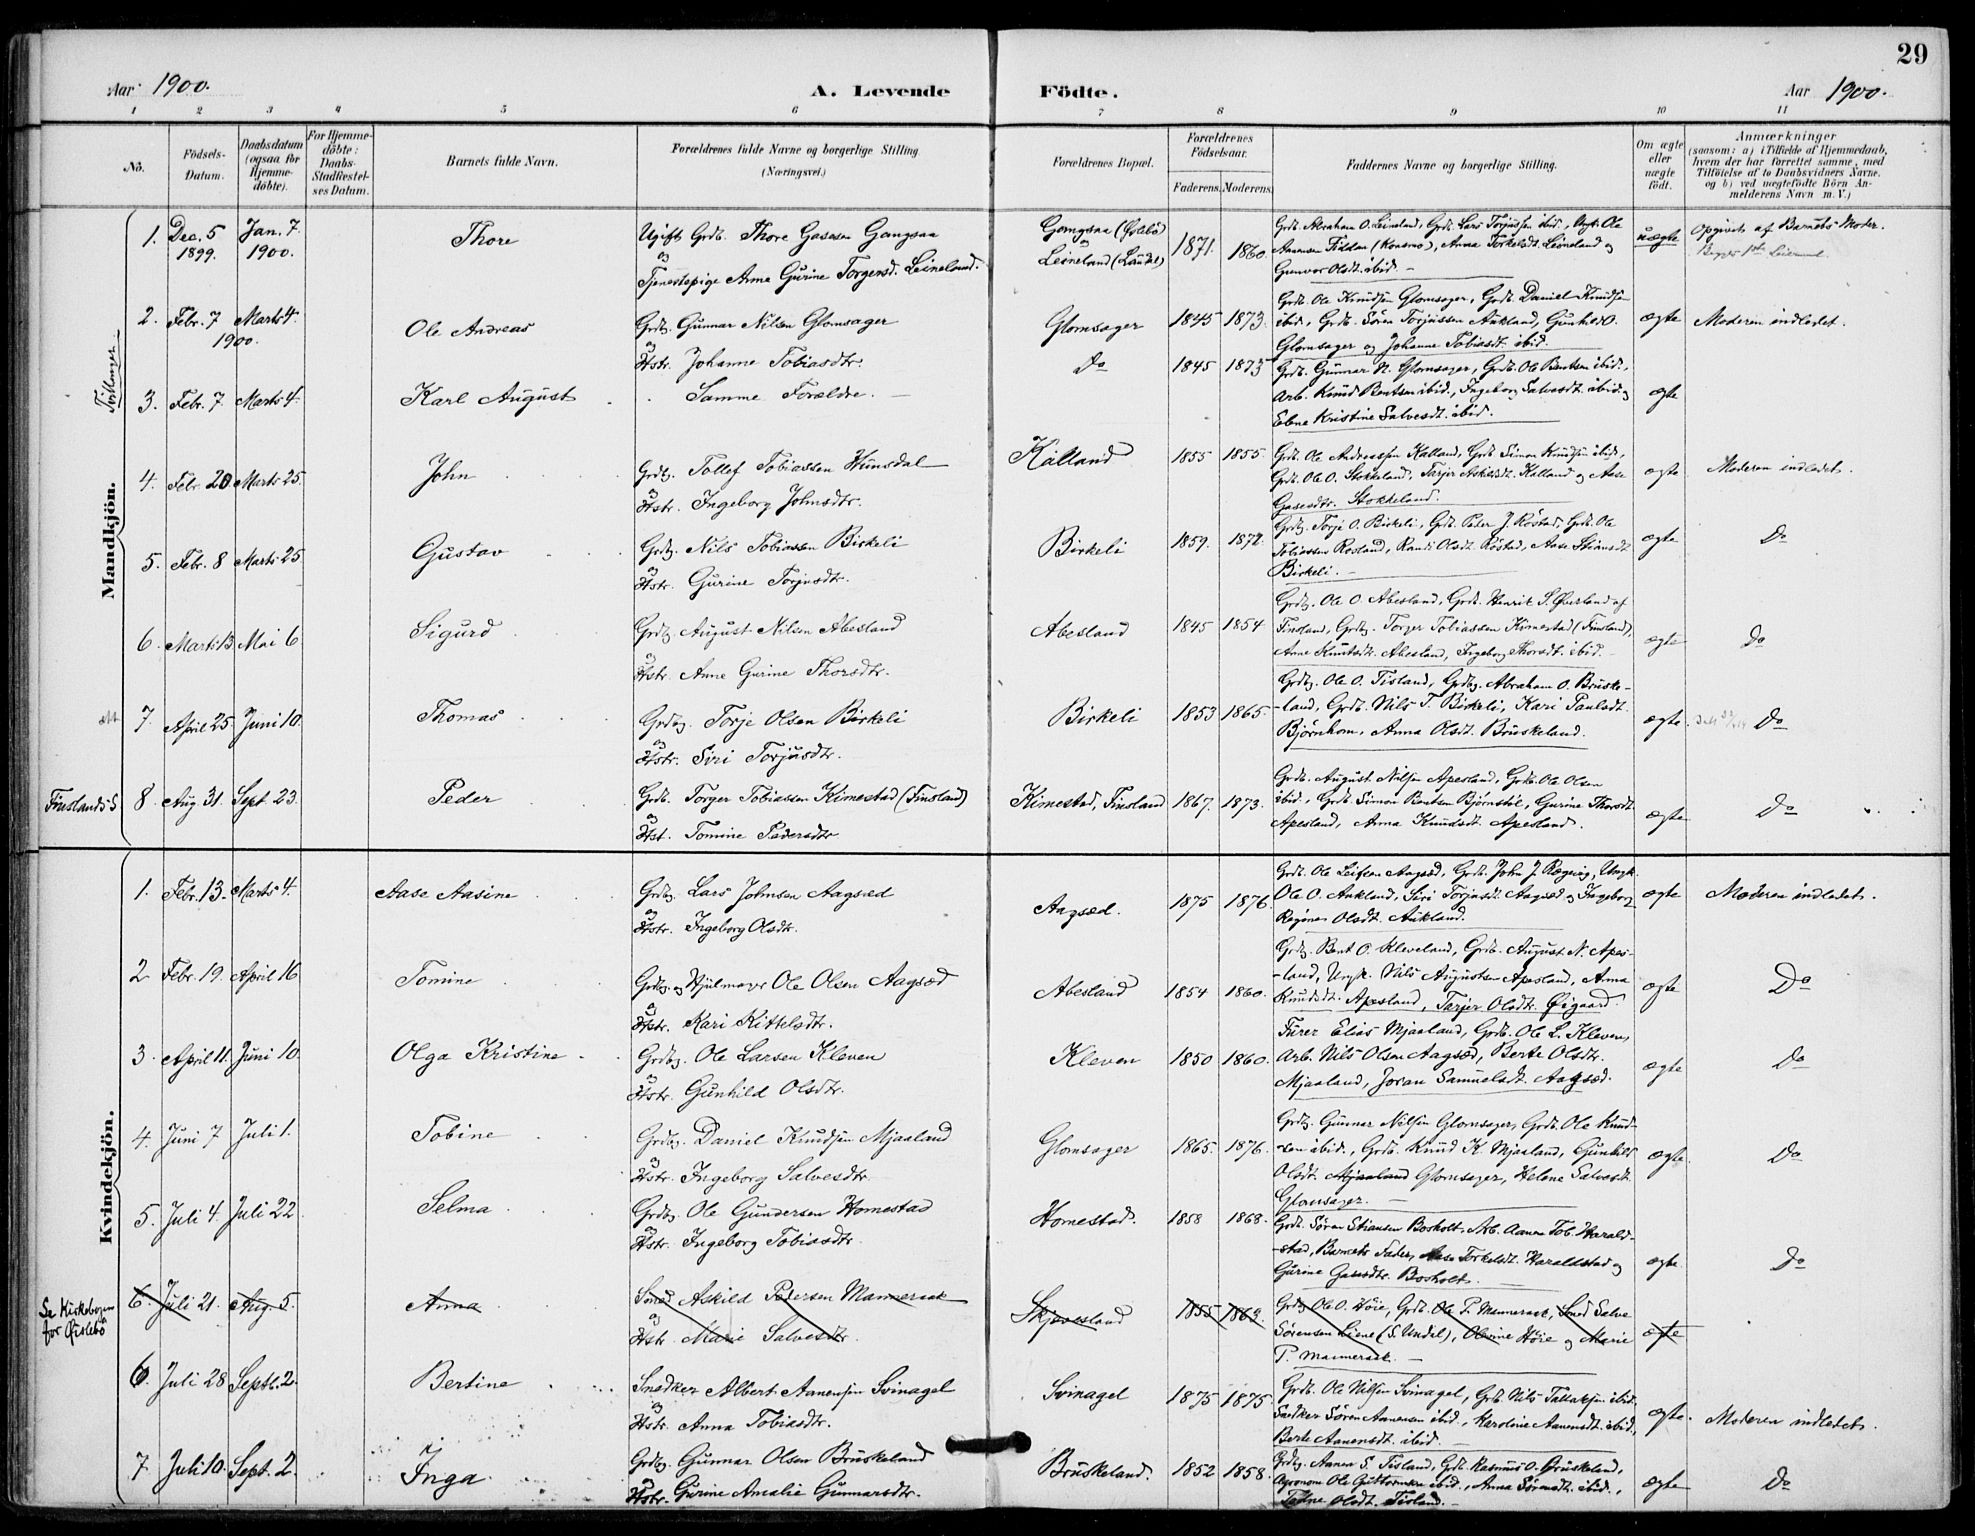 29
Aar 1900. A. Levende Födte. Aar 1900.
1 2 3 4 5 6 7 8 9 10 11
No. Födsels-Datum. Daabsdatum (ogsaa for Hjemme-döbte). For Hjemme-döbte: Daabs-Stadfæstel-ses Datum. Barnets fulde Navn. Forældrenes fulde Navne og borgerlige Stilling (Næringsvei.) Forældrenes Bopæl. Forældrenes Födselsaar. Faderens. Moderens. Faddernes Navne og borgerlige Stilling. Om ægte eller uægte født. Anmærkninger (saasom: a) i Tilfælde af Hjemmedaab, hvem der har forrettet samme, med Tilföielse af to Daabsvidners Navne. og b) ved uægtefödte Börn An-melderens Navn m. V.)
Mandkjön.
1. Dec. 5 1899. Jan. 7. 1900. Thore
Ugift Grdb. Thore Gasesen Gangsaa
og
Tjenestepige Anna Gurine Torgersd. Leineland.
Leineland (Laudal) 1871. 1860. uægte Opgivet af Barnets Moder.
Tvillinger
2. Febr. 7 1900. Marts 4. Ole Andreas
Grdbg. Gunnar Nilsen Glomsager
og
Hstr. Johanne Tobiasdtr.
Glomsager 1845 1873.
Grdb. Ole Knudsen Glomsager, Grdb. Daniel Knudsen
ibid., Grdb. Sören Torjussen Aukland, Gunhild O.
Glomsager og Johanne Tobiasdt. ibid.
ægte Moderen indledet.
3. Febr. 7 Marts 4. Karl August Samme Forældre. Do 1845 1873
Grdb. Gunnar N. Glomsager, Grdb. Ole Bentsen ibid.,
Arb. Knud Bentsen ibid., Ingeborg Salvesdt. ibid. og
Elene Kristine Salvesdt. ibid.
ægte
4. Febr. 20 Marts 25. John
Grdbg. Tollef Tobiassen Hunsdal
og
Hstr. Ingeborg Johnsdtr.
Kalland 1855 1855.
Grdb. Ole Andreassen Kalland, Grdb. Simon Knudsen ibid.,
Grdb. Ole O. Stokkeland, Tarjer Askilsdt. Kalland og Aase
Gasesdtr. Stokkeland.
ægte Moderen indledet.
5. Febr. 8 Marts 25 Gustav
Grdbg. Nils Tobiassen Birkeli
og
Hstr. Gurine Torjusdtr.
Birkeli 1859. 1872.
Grdbg. Torje O. Birkeli, Grdb. Peter J. Röstad, Grdb. Ole
Tobiassen Rosland, Randi Olsdt. Röstad, Aase Stiansdt
Birkeli.
ægte Do
6. Marts 13. Mai 6. Sigurd
Grdbg. August Nilsen Abesland
og
Hstr. Anne Gurine Thorsdtr.
Abesland 1845 1854
Grdbg. Ole O. Abesland, Grdb. Henrik S. Øverland af
Finsland, Grdbg. Torger Tobiassen Kimestad (Finsland),
Anne Knutsdtr. Abesland, Ingeborg Thorsdt. ibid.
ægte Do
7. April 25. Juni 10. Thomas
Grdbg. Torje Olsen Birkeli
og
Hstr. Siri Torjusdtr.
Birkeli 1853 1865.
Grdbg. Ole O. Tisland, Grdbg. Abraham O. Bruske-
-land, Grdb. Nils T. Birkeli, Kari Paulsdt.
Bjørnhom, Anna Olsdt. Bruskeland.
ægte Do
Finslands S. 8. Aug 31. Sept. 23. Peder
Grdb. Torger Tobiassen Kimestad (Finsland)
og
Hst. Tomine Pedersdtr
Kimestad, Finsland 1867. 1873.
Grdb. August Nilsen Apesland, Grdb. Ole Olsen
ibid., Grdb. Simon Bentsen Bjørnstöl, Gurine Thorsdt.
Apesland, Anna Knudsdt. Apesland.
ægte Do
Kvindekjön.
1. Febr. 13. Marts 4. Aase Aasine
Grdbg. Lars Johnsen Aagsæd
og
Hstr. Ingeborg Olsdtr.
Aagsæd. 1875 1876.
Grdb. Ole Leifsen Aagsæd, Grdb. John J. Rægevig, Ungk.
Ole O. Aukland, Siri Torjusdt. Aagsæd og Ingeborg
Regine Olsdt. Aukland.
ægte Moderen indledet.
2 Febr. 19. April 16 Tomine
Grdbg. og Hjulmager Ole Olsen Aagsæd
og
Hstr. Kari Kittelsdtr.
Abesland 1854 1860.
Grdbg. Bent O. Kleveland, Grdb. August N. Apes-
-land, Ungk. Nils Augustsen Apesland, Anna
Knudsdt. Apesland, Tarjer Olsdtr. Øigaard.
ægte Do
3. April 11. Juni 10. Olga Kristine
Grdbg. Ole Larsen Kleven
og
Hstr. Gunhild Olsdtr.
Kleven 1850 1860.
Furer Elias Mjaaland, Grdb. Ole L. Kleven,
Arb. Nils Olsen Aagsæd, Berte Olsdtr.
Mjaaland, Joran Samuelsdt. Aagsæd.
ægte Do
4. Juni 7 Juli 1. Tobine
Grdbg. Daniel Knudsen Mjaaland
og
Hstr. Ingeborg Salvesdtr.
Glomsager 1865. 1876.
Grdbg. Gunnar Nilsen Glomsager, Grdb. Ole Knud-
-sen ibid., Grdb. Knud K. Mjaaland, Gunhild
Olsdt. Mjaaland Glomsager, Helene Salvesdt.
Glomsager.
ægte. Do
5. Juli 4. Juli 22 Selma
Grdbg. Ole Gundersen Homestad
og
Hstr. Ingeborg Tobiasdtr.
Homestad. 1858 1868.
Grdb. Søren Stiansen Bosholt, Arb. Aanen Tob. Harald-
-stad, Barnets Fader, Aase Torkelsdt. Haraldstad og
Gurine Gasesdtr. Bosholt.
ægte. Do
Se Kirkebogen
for Øislebö
6. Juli 21. Aug. 5. Anna
Smed Askild Pedersen Mannersak
og
Hstr. Marie Salvesdtr.
Skjævesland 1855 1863.
Grdbg. Ole O. Höie, Grdb. Ole P. Mannersak, Smed Salve
Sörensen Liene (S. Undal), Olevine Höie og Marie
P. Mannersak.
ægte
6 Juli 28 Septb. 2. Bertine
Snedker Albert Aanensen Svinagel
og
Hstr. Anna Tobiasdtr.
Svinagel 1875 1875.
Grdb. Ole Nilsen Svinagel, Grdb. Nils Tallaksen ibid.
Snedker Sören Aanensen ibid., Karoline Aanensdt. ibid.,
Berte Aanensdt. ibid.
ægte. Moderen indledet.
7 Juli 10. Sept. 2. Inga
Grdbg. Gunnar Olsen Bruskeland
og
Hstr. Gurine Amalie Gunnarsdtr.
Bruskeland. 1852 1858.
Grdbg. Aanen S. Tisland, Grdb. Rasmus O. Bruskeland,
Agronom Ole Guttormsen ibid., Anna Sörensdt. ibid.,
Olsdt. Tisland.
ægte Do